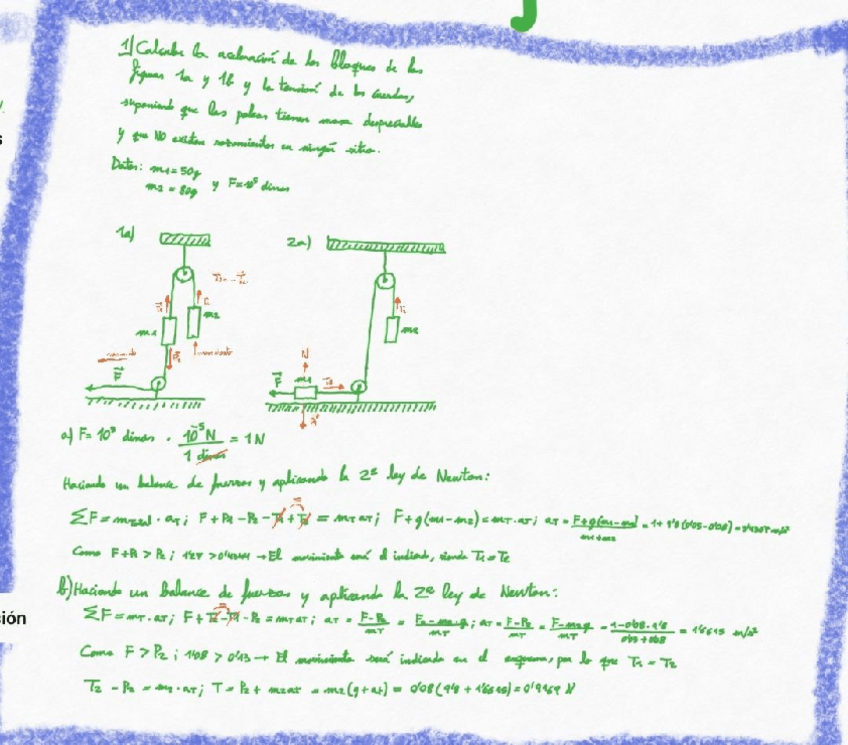 1) Calcular la aceleración de los bloques de las
figuras 1a y 1b y la tensión de las cuerdas,
suponiendo que las poleas tienen masa despreciable
y que NO existen rozamientos en ningún sitio.
Datos: m1=50g
m2=80g y F=10^5 dinas
1a) 2a)
m2
m1
m2
movimiento
F
N
F m1 T2
a) F=10^5 dinas · 10^-5 N / 1 dina = 1N
Haciendo un balance de fuerzas y aplicando la 2ª ley de Newton:
F+P1-P2-T1+T2 = mT·aT; F+g(m1-m2)=mT·aT; aT = F+g(m1-m2) / m1+m2
Como F+P1 > P2; → El movimiento será el indicado, siendo T1=T2
b) Haciendo un balance de fuerzas y aplicando la 2ª ley de Newton:
ΣF=mT·aT; F+T2-T1-P2=mT·aT; aT = F-P2 / mT = F-m2·g / mT; aT = F-P2 / mT = F-m2g / mT = 1-0'08·9'8 / 0'05+0'08 = 1'6615 m/s²
Como F > P2; → El movimiento será indicado en el esquema, por lo que T1=T2
T = P2 + m2aT = m2(g+aT) = 0'08(9'8+1'6615)=0'9169 N
ión